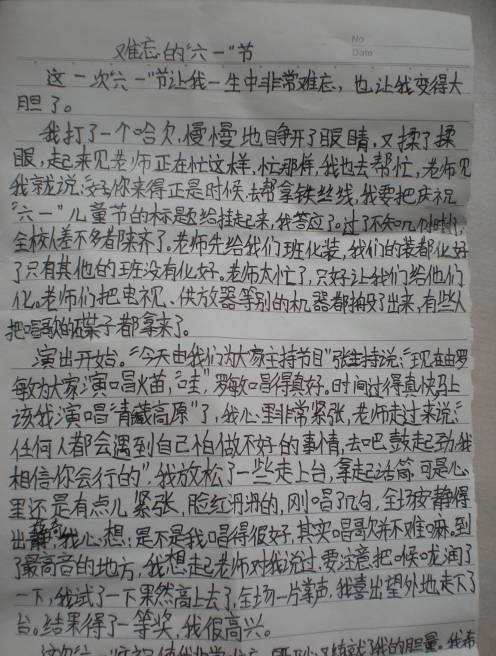 No
Date
难忘的"六一"节
这一次"六一"节让我一生中非常难忘，也让我变得大
胆了。
我打了一个哈欠，慢慢地睁开了眼睛，又揉了揉
眼，起来见老师正在忙这样，忙那样，我也去帮忙，老师见
我就说："好你来得正是时候去帮拿铁丝线，我要把庆祝
"六一"儿童节的标题给挂起来，我答应了。过了不知几个时
全校人差不多都来齐了。老师先给我们班化装，我们的装都化好
了只有其他的班没有化好。老师太忙了，只好让我们给他们
化。老师们把电视、供放器等别的机器都搬了出来，有些人
把唱歌的碟子都拿来了。
演出开始。"今天由我们为大家主持节目"张主持说："现在由罗
敏为大家演唱火苗，"哇"，罗敏唱得真好。时间过得真快马上
该我演唱"青藏高原"了，我心里非常紧张，老师走过来说："
任何人都会遇到自己怕做不好的事情，去吧鼓起劲，我
相信你会行的"，我放松了一些走上台，拿起话筒可是心
里还是有点儿紧张，脸红的，刚唱了几句，全场安静得
出奇，我心想：是不是我唱得很好，其实唱歌并不难嘛，到
了最高音的地方，我想起老师对我说过，要注意把喉咙润了
一下，我试了一下果然高上去了，全场一片掌声，我喜出望外地走下了
台。结果得了一等奖，我很高兴。
这次"六一"
我的胆量。我希